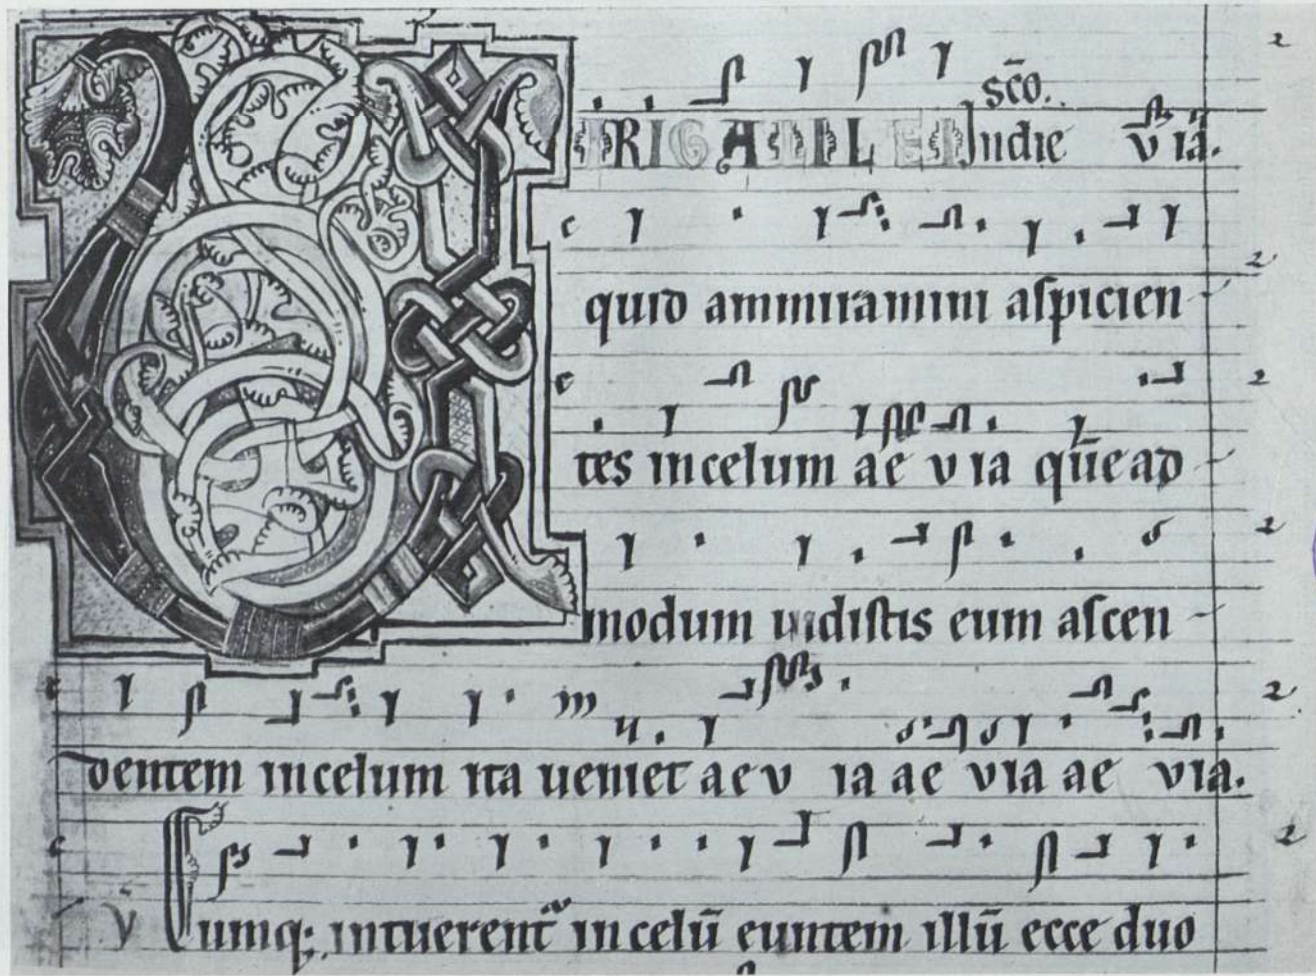 VIRIGALILEI Indie sc̄o. v ia.
quid ammiramini aſpicien-
tes incelum ae v ia quēad-
modum uidiſtis eum aſcen-
dentem incelum ita ueniet aev ia ae via ae via.
v Cumq; intuerent̄ incelū euntem illū ecce duo